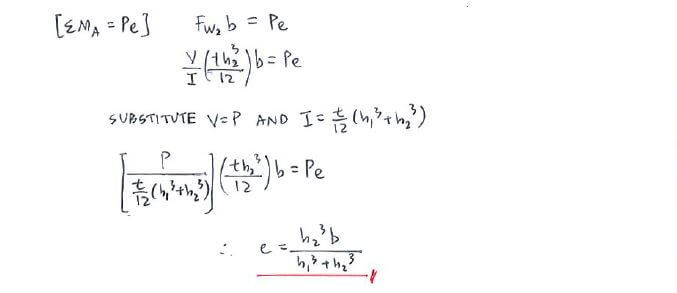 [ΣM_A = Pe] F_W₂ b = Pe
V/I (th₂³/12) b = Pe
SUBSTITUTE V=P AND I = t/12 (h₁³ + h₂³)
[P / (t/12 (h₁³ + h₂³))] (th₂³/12) b = Pe
∴ e = h₂³ b / (h₁³ + h₂³)